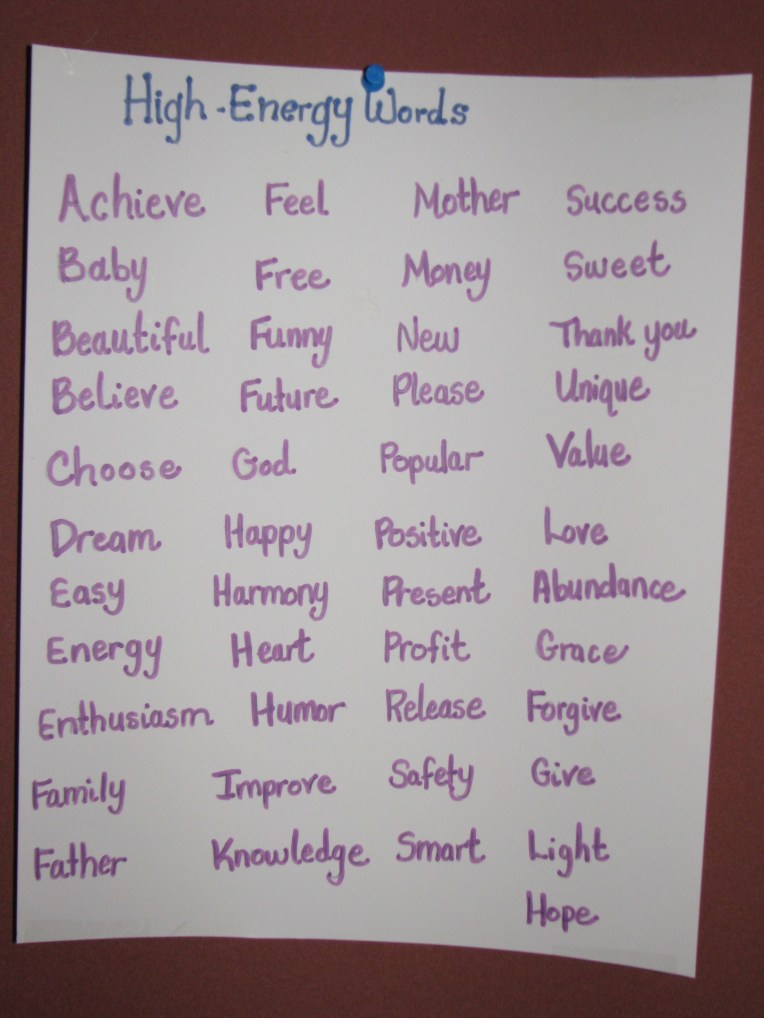 High-Energy Words
Achieve Feel Mother Success
Baby Free Money Sweet
Beautiful Funny New Thank you
Believe Future Please Unique
Choose God Popular Value
Dream Happy Positive Love
Easy Harmony Present Abundance
Energy Heart Profit Grace
Enthusiasm Humor Release Forgive
Family Improve Safety Give
Father Knowledge Smart Light
Hope